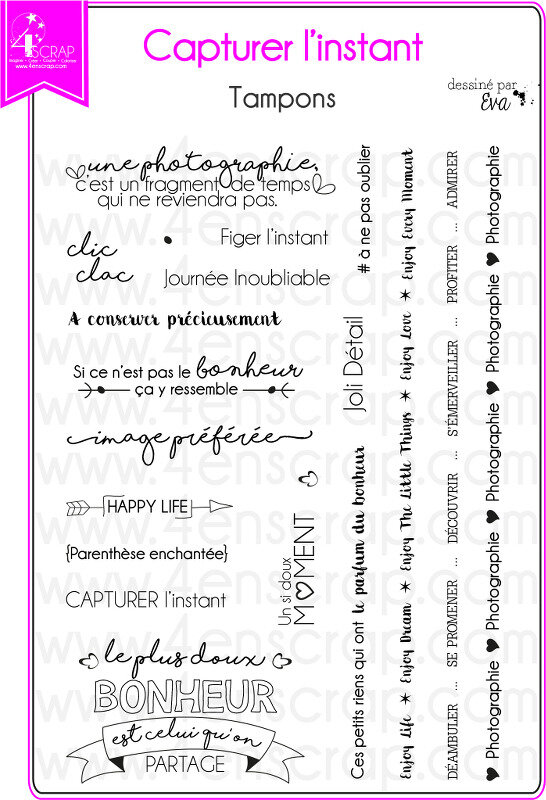 4enSCRAP
Imagine - Crée - Coupe - Colorise
www.4enscrap.com
Capturer l'instant
Tampons
dessiné par
Eva
une photographie,
c'est un fragment de temps
qui ne reviendra pas.
clic
clac
Figer l'instant
Journée Inoubliable
A conserver précieusement
Si ce n'est pas le bonheur
ça y ressemble
image préférée
HAPPY LIFE
{Parenthèse enchantée}
CAPTURER l'instant
le plus doux
BONHEUR
est celui qu'on
PARTAGE
Un si doux
MOMENT
# à ne pas oublier
Joli Détail
Ces petits riens qui ont le parfum du bonheur
Enjoy Life * Enjoy Dream * Enjoy The Little Things * Enjoy Love * Enjoy Every Moment
DÉAMBULER ... SE PROMENER ... DÉCOUVRIR ... S'ÉMERVEILLER ... PROFITER ... ADMIRER
Photographie ♥ Photographie ♥ Photographie ♥ Photographie ♥ Photographie
www.4enscrap.com
www.4enscrap.com
www.4enscrap.com
www.4enscrap.com
www.4enscrap.com
www.4enscrap.com
www.4enscrap.com